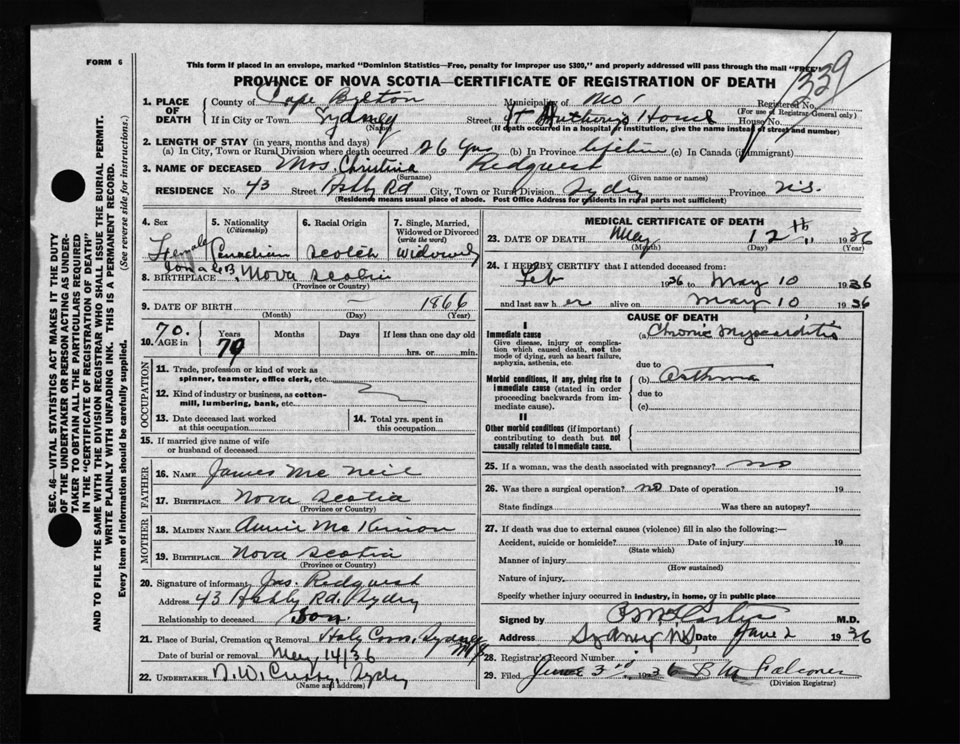 FORM 6
This form if placed in an envelope, marked "Dominion Statistics—Free, penalty for improper use $300," and properly addressed will pass through the mail "FREE"
339
PROVINCE OF NOVA SCOTIA—CERTIFICATE OF REGISTRATION OF DEATH
1. PLACE OF DEATH County of Cape Breton Municipality of Registered No. (For use of Registrar-General only)
If in City or Town Sydney (Name) Street St Anthonys Home House No.
(If death occurred in a hospital or institution, give the name instead of street and number)
2. LENGTH OF STAY (in years, months and days)
(a) In City, Town or Rural Division where death occurred 26 yrs (b) In Province lifetime (c) In Canada (if immigrant)
3. NAME OF DECEASED Mrs. Christina Redquest
(Surname) (Given name or names)
RESIDENCE No. 43 Street Ashby Rd City, Town or Rural Division Sydney Province N.S.
(Residence means usual place of abode. Post Office Address for residents in rural parts not sufficient)
4. Sex Female
5. Nationality (Citizenship) Canadian
6. Racial Origin Scotch
7. Single, Married, Widowed or Divorced (write the word) Widowed
8. BIRTHPLACE Nova Scotia
(Province or Country)
9. DATE OF BIRTH — 1866
(Month) (Day) (Year)
10. AGE in 70. Years 79 Months Days If less than one day old
hrs. or min.
OCCUPATION
11. Trade, profession or kind of work as spinner, teamster, office clerk, etc.
12. Kind of industry or business, as cotton-mill, lumbering, bank, etc.
13. Date deceased last worked at this occupation
14. Total yrs. spent in this occupation
15. If married give name of wife or husband of deceased
FATHER
16. NAME James Mc Neil
17. BIRTHPLACE Nova Scotia
(Province or Country)
MOTHER
18. MAIDEN NAME Annie Mc Kinnon
19. BIRTHPLACE Nova Scotia
(Province or Country)
20. Signature of informant Jas. Redquest
Address 43 Ashby Rd. Sydney
Relationship to deceased Son
21. Place of Burial, Cremation or Removal Holy Cross, Sydney
Date of burial or removal May 14/36
22. UNDERTAKER Sydney
(Name and address)
MEDICAL CERTIFICATE OF DEATH
23. DATE OF DEATH May 12th 1936
(Month) (Day) (Year)
24. I HEREBY CERTIFY that I attended deceased from:
Feb 1936 to May 10 1936
and last saw her alive on May 10 1936
CAUSE OF DEATH
I
Immediate cause
Give disease, injury or complication which caused death, not the mode of dying, such as heart failure, asphyxia, asthenia, etc.
(a) Chronic Myocarditis
due to
Morbid conditions, if any, giving rise to immediate cause (stated in order proceeding backwards from immediate cause).
(b) Asthma
due to
(c)
II
Other morbid conditions (if important) contributing to death but not causally related to immediate cause.
25. If a woman, was the death associated with pregnancy? no
26. Was there a surgical operation? no Date of operation 19
State findings Was there an autopsy?
27. If death was due to external causes (violence) fill in also the following:—
Accident, suicide or homicide? Date of injury 19
(State which)
Manner of injury
(How sustained)
Nature of injury
Specify whether injury occurred in industry, in home, or in public place
Signed by M.D.
Address Sydney NS Date June 2 1936
28. Registrar's Record Number
29. Filed June 3rd 1936
(Division Registrar)
SEC. 46—VITAL STATISTICS ACT MAKES IT THE DUTY
OF THE UNDERTAKER OR PERSON ACTING AS UNDER-
TAKER TO OBTAIN ALL THE PARTICULARS REQUIRED
IN THE "CERTIFICATE OF REGISTRATION OF DEATH"
AND TO FILE THE SAME WITH THE DIVISION REGISTRAR WHO SHALL ISSUE THE BURIAL PERMIT.
WRITE PLAINLY WITH UNFADING INK. THIS IS A PERMANENT RECORD.
Every item of information should be carefully supplied. (See reverse side for instructions.)